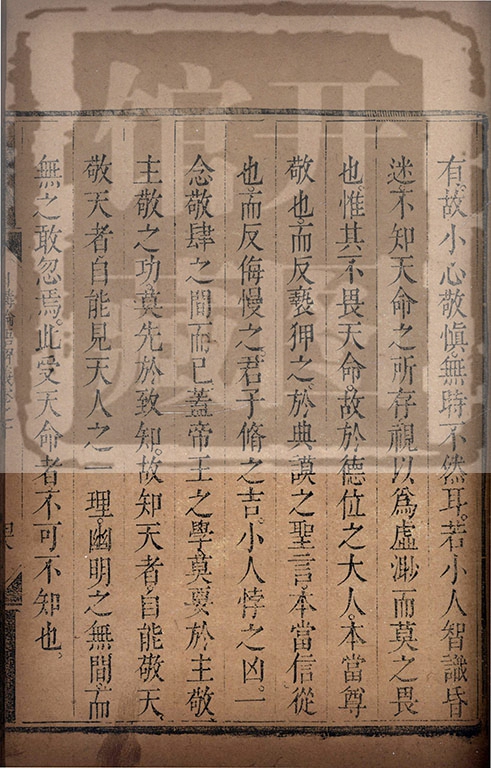 有。故小心敬慎。無時不然耳。若小人智識昏
迷。不知天命之所存視以為虛渺而莫之畏
也。惟其不畏天命。故於德位之大人。本當尊
敬也。而反褻狎之。於典謨之聖言。本當信從
也。而反侮慢之。君子脩之吉。小人悖之凶。一
念敬肆之間而已。蓋帝王之學。莫要於主敬。
主敬之功。莫先於致知。故知天者。自能敬天。
敬天者。自能見天人之一理。幽明之無間。而
無之敢忽焉。此受天命者不可不知也。